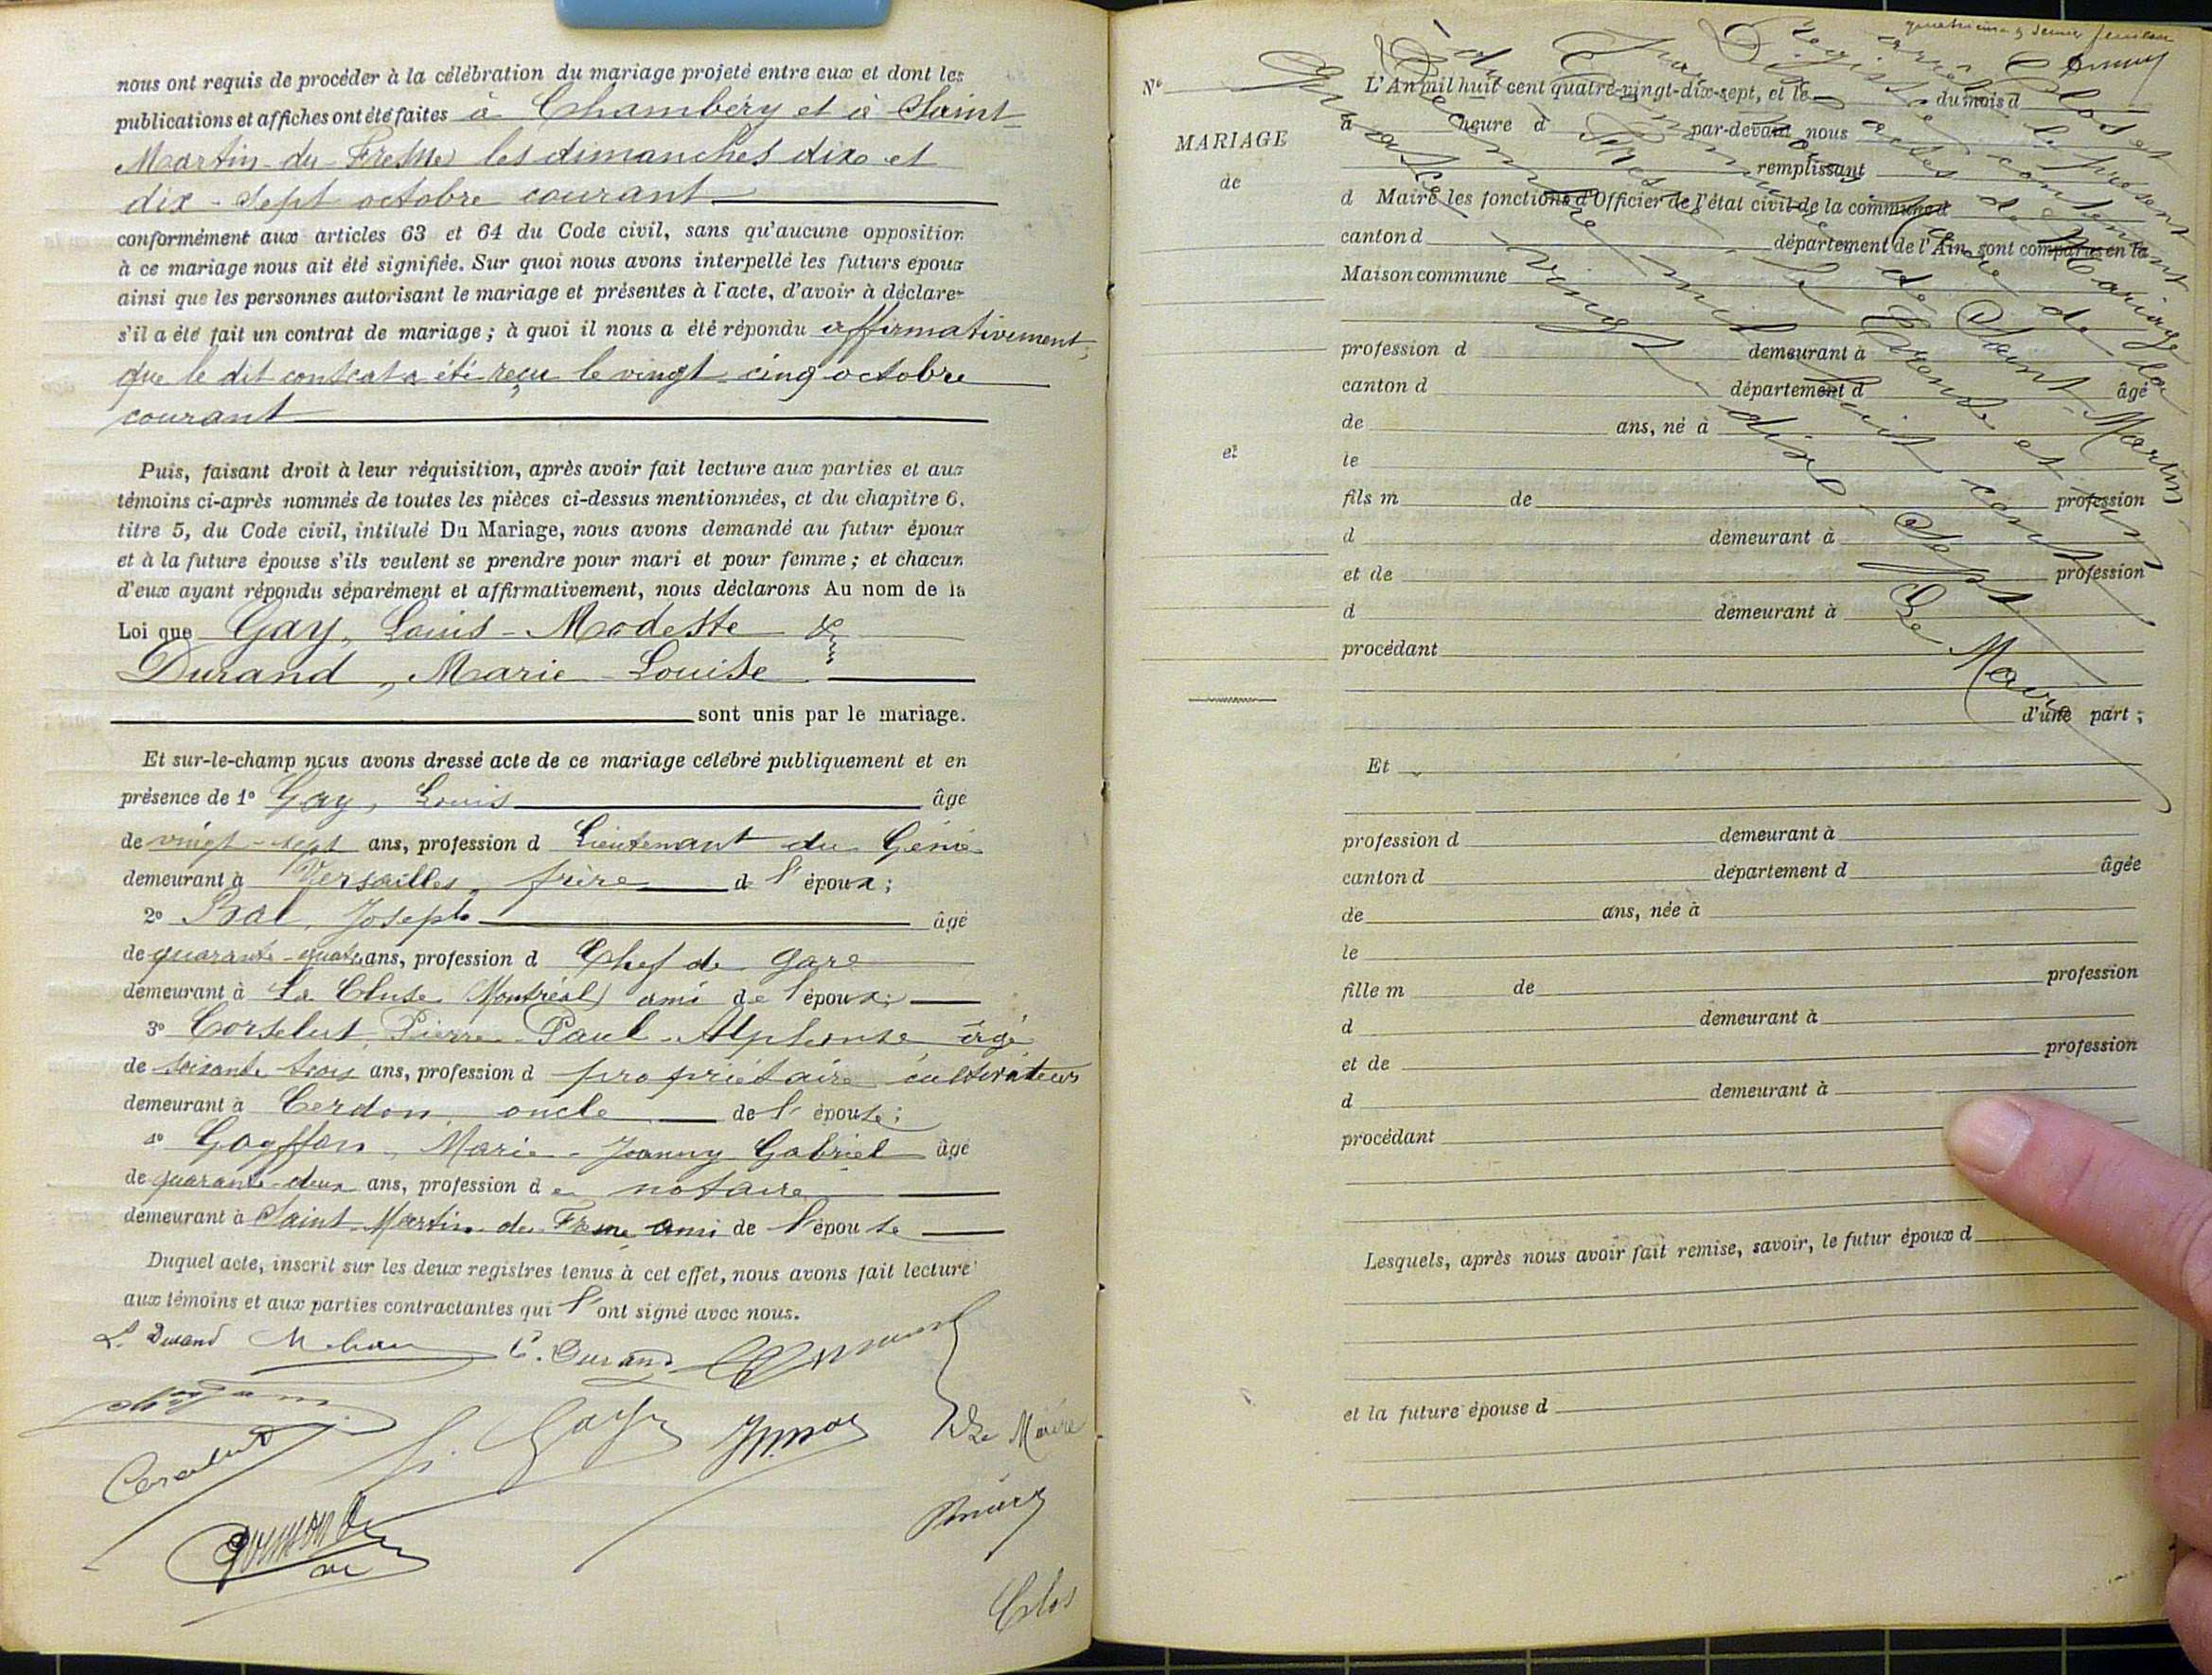 nous ont requis de procéder à la célébration du mariage projeté entre eux et dont les
publications et affiches ont été faites à Chambéry et à Saint-
Martin-du-Fresne les dimanches dix et
dix-sept octobre courant
conformément aux articles 63 et 64 du Code civil, sans qu'aucune opposition
à ce mariage nous ait été signifiée. Sur quoi nous avons interpellé les futurs époux
ainsi que les personnes autorisant le mariage et présentes à l'acte, d'avoir à déclarer
s'il a été fait un contrat de mariage ; à quoi il nous a été répondu affirmativement;
que le dit contrat a été reçu le vingt-cinq octobre
courant
Puis, faisant droit à leur réquisition, après avoir fait lecture aux parties et aux
témoins ci-après nommés de toutes les pièces ci-dessus mentionnées, et du chapitre 6,
titre 5, du Code civil, intitulé Du Mariage, nous avons demandé au futur époux
et à la future épouse s'ils veulent se prendre pour mari et pour femme ; et chacun
d'eux ayant répondu séparément et affirmativement, nous déclarons Au nom de la
Loi que Gay, Louis-Modeste &
Durand, Marie-Louise
sont unis par le mariage.
Et sur-le-champ nous avons dressé acte de ce mariage célébré publiquement et en
présence de 1° Gay, Louis âgé
de vingt-sept ans, profession d Lieutenant du Génie
demeurant à Versailles, frère de l'époux ;
2° Bal, Joseph âgé
de quarante-quatre ans, profession d Chef de gare
demeurant à La Cluse (Montréal) ami de l'époux;
3° Corselut, Pierre-Paul-Alphonse âgé
de soixante trois ans, profession d propriétaire cultivateur
demeurant à Cerdon, oncle de l'épouse;
4° Goyffon, Marie-Joanny Gabriel âgé
de quarante-deux ans, profession de notaire
demeurant à Saint-Martin du Fresne ami de l'épouse
Duquel acte, inscrit sur les deux registres tenus à cet effet, nous avons fait lecture
aux témoins et aux parties contractantes qui l'ont signé avec nous.
L. Durand
Durand
Corselut
L. Gay
Le Maire
Clos
Clos et
arrêté le présent
Registre contenant
Dix actes de Mariage
de la
commune de Saint-Martin
du Fresne le Trente et un
Décembre mil huit cent
Quatre-vingt-dix-sept
Le Maire
N°
MARIAGE
de
et
L'An mil huit cent quatre-vingt-dix-sept, et le du mois d
à heure d par-devant nous
remplissant
d Maire les fonctions d'Officier de l'état civil de la commune d
canton d département de l'Ain, sont comparus en la
Maison commune
profession d demeurant à
canton d département d âgé
de ans, né à
le
fils m de profession
d demeurant à
et de profession
d demeurant à
procédant
d'une part ;
Et
profession d demeurant à
canton d département d âgée
de ans, née à
le
fille m de profession
d demeurant à
et de profession
d demeurant à
procédant
Lesquels, après nous avoir fait remise, savoir, le futur époux d
et la future épouse d